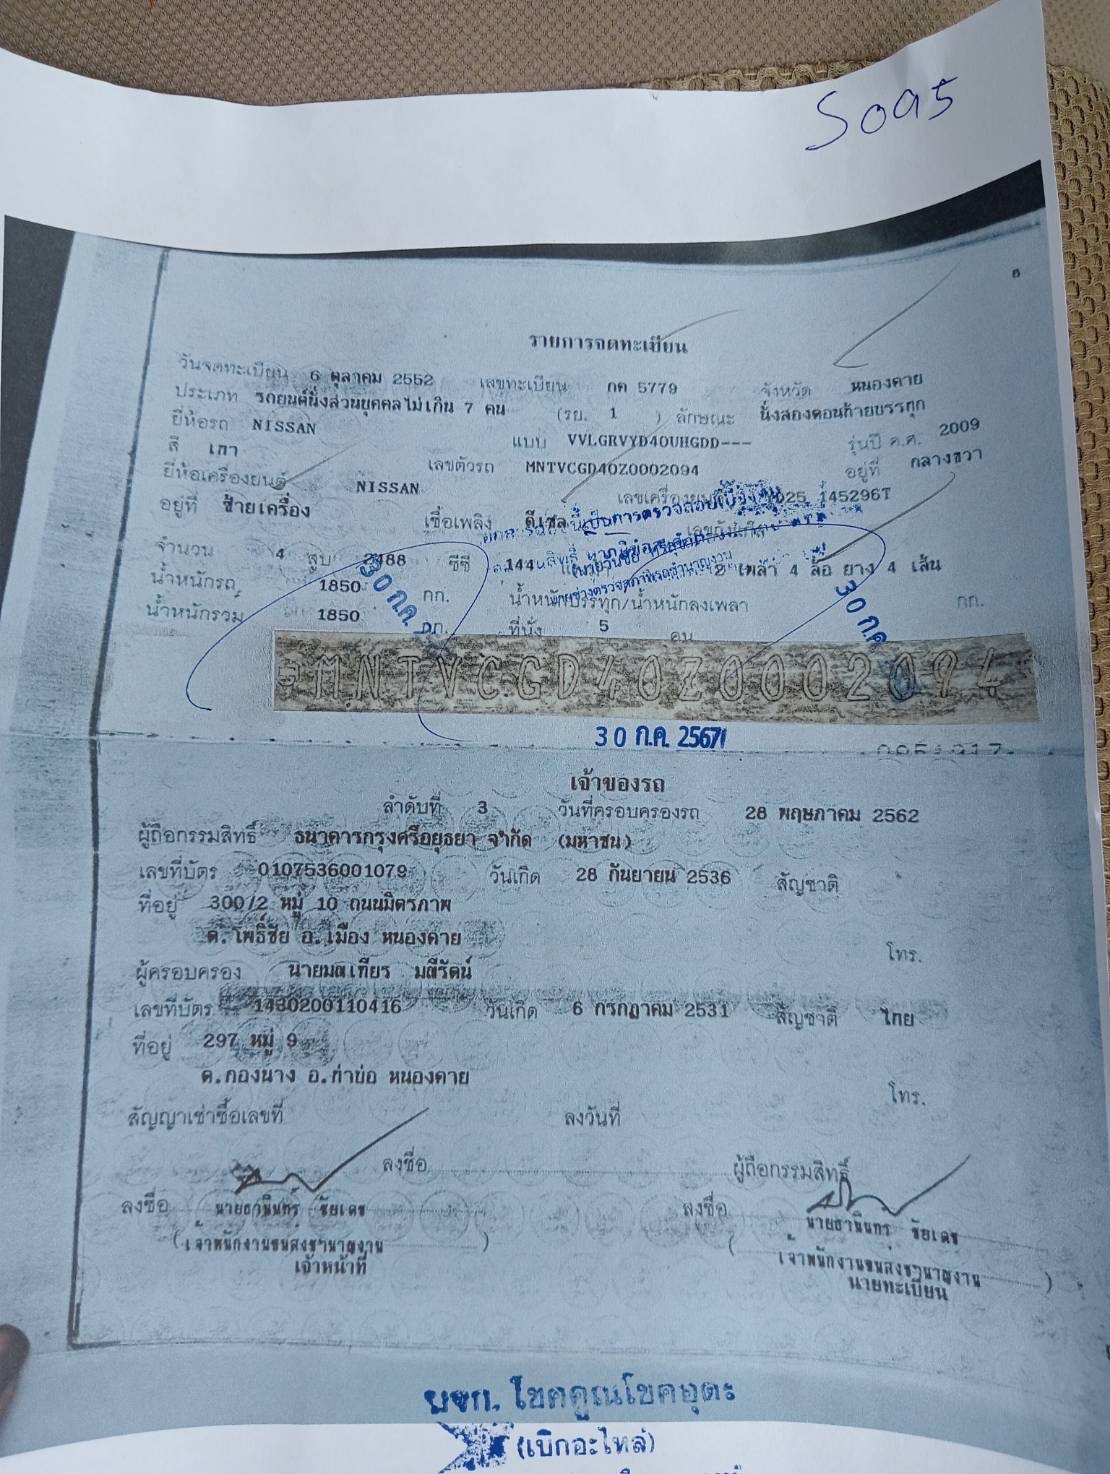 5095
6
รายการจดทะเบียน
วันจดทะเบียน 6 ตุลาคม 2552 เลขทะเบียน กค 5779 จังหวัด หนองคาย
ประเภท รถยนต์นั่งส่วนบุคคลไม่เกิน 7 คน (รย. 1 ) ลักษณะ นั่งสองตอนท้ายบรรทุก
ยี่ห้อรถ NISSAN แบบ VVLGRVYD40UHGDD--- รุ่นปี ค.ศ. 2009
สี เทา เลขตัวรถ MNTVCGD40Z0002094 อยู่ที่ กลางขวา
ยี่ห้อเครื่องยนต์ NISSAN เลขเครื่องยนต์ 145296T
อยู่ที่ ซ้ายเครื่อง เชื้อเพลิง ดีเซล
จำนวน 4 สูบ 2488 ซีซี 144 2 เพลา 4 ล้อ ยาง 4 เส้น
น้ำหนักรถ 1850 กก. น้ำหนักบรรทุก/น้ำหนักลงเพลา กก.
น้ำหนักรวม 1850 กก. ที่นั่ง 5 คน
30 ก.ค.
30 ก.ค.
MNTVCGD40Z0002094
30 ก.ค. 2567
เจ้าของรถ
ลำดับที่ 3 วันที่ครอบครองรถ 28 พฤษภาคม 2562
ผู้ถือกรรมสิทธิ์ ธนาคารกรุงศรีอยุธยา จำกัด (มหาชน)
เลขที่บัตร 0107536001079 วันเกิด 28 กันยายน 2536 สัญชาติ
ที่อยู่ 300/2 หมู่ 10 ถนนมิตรภาพ
ต.โพธิ์ชัย อ.เมือง หนองคาย โทร.
ผู้ครอบครอง นายมณเทียร มณีรัตน์
เลขที่บัตร 1430200110416 วันเกิด 6 กรกฎาคม 2531 สัญชาติ ไทย
ที่อยู่ 297 หมู่ 9
ต.กองนาง อ.ท่าบ่อ หนองคาย โทร.
สัญญาเช่าซื้อเลขที่ ลงวันที่
ลงชื่อ ผู้ถือกรรมสิทธิ์
ลงชื่อ นายธานินทร์ ชัยเดช ลงชื่อ นายธานินทร์ ชัยเดช
(เจ้าพนักงานขนส่งชำนาญงาน ) ( เจ้าพนักงานขนส่งชำนาญงาน )
เจ้าหน้าที่ นายทะเบียน
ผจก. โชคคูณโชคอุดร
(เบิกอะไหล่)